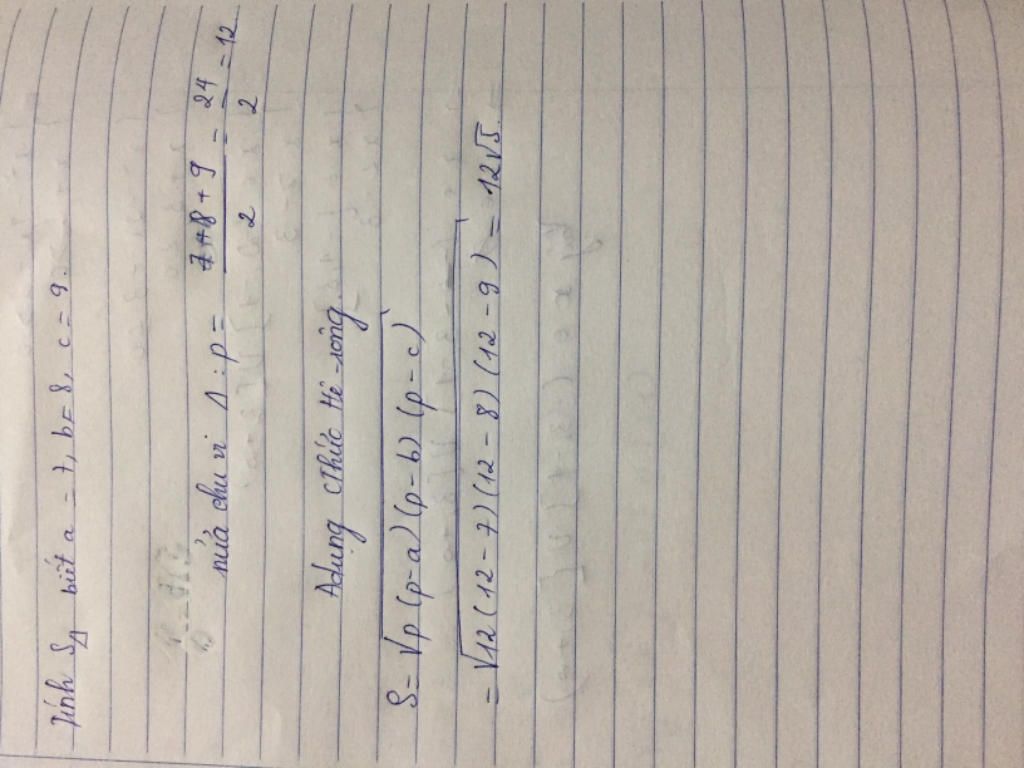 Tính S_Δ biết a = 7, b = 8, c = 9.
nửa chu vi Δ : p = (7 + 8 + 9)/2 = 24/2 = 12
Adụng cthức Hê-rông.
S = √(p(p-a)(p-b)(p-c))
= √(12(12-7)(12-8)(12-9)) = 12√5.